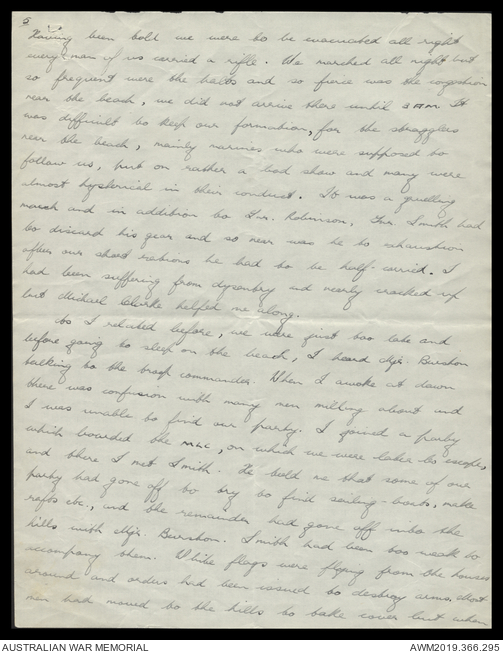 5
Having been told we were to be evacuated all right
every man of us carried a rifle. We marched all night but
so frequent were the halts and so fierce was the congestion
near the beach, we did not arrive there until 3 am. It
was difficult to keep our formation, for the stragglers
near the beach, mainly marines who were supposed to
follow us, put on rather a bad show and many were
almost hysterical in their conduct. It was a gruelling
march and in addition to Gnr. Robinson, Gnr. Smith had
to discard his gear and so near was he to exhaustion
after our short rations he had to be half-carried. I
had been suffering from dysentry and nearly cracked up
but Michael Clarke helped me along.
As I related before, we were just too late and
before going to sleep on the beach, I heard Mjr. Burston
talking to the troop commander. When I awoke at dawn
there was confusion with many men milling about and
I was unable to find our party. I joined a party
which boarded the MLC, on which we were later to escape,
and there I met Smith. He told me that some of our
party had gone off to try to find sailing-boats, make
rafts etc., and the remainder had gone off into the
hills with Mjr. Burston. Smith had been too weak to
accompany them. White flags were flying from the houses
around and orders had been issued to destroy arms. Most
men had moved to the hills to take cover but when
AUSTRALIAN WAR MEMORIAL
AWM2019.366.295